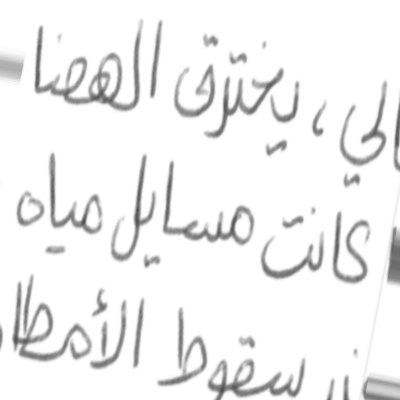 الي ، يخترق الهضا
كانت مسايل مياه
سقوط الأمطا